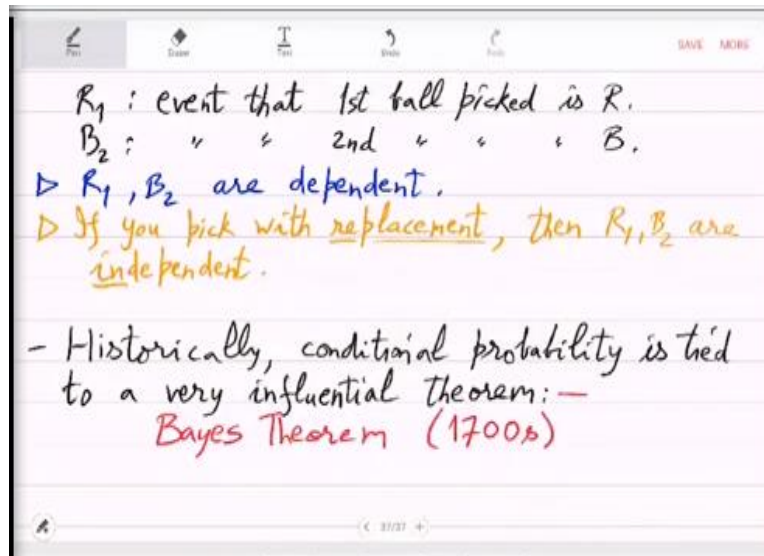 Pen Eraser Text Undo Redo SAVE MORE
R₁ : event that 1st ball picked is R.
B₂ : " " 2nd " " " B.
▷ R₁, B₂ are dependent.
▷ If you pick with replacement, then R₁, B₂ are
independent.
- Historically, conditional probability is tied
to a very influential theorem: —
Bayes Theorem (1700s)
< 37/37 +